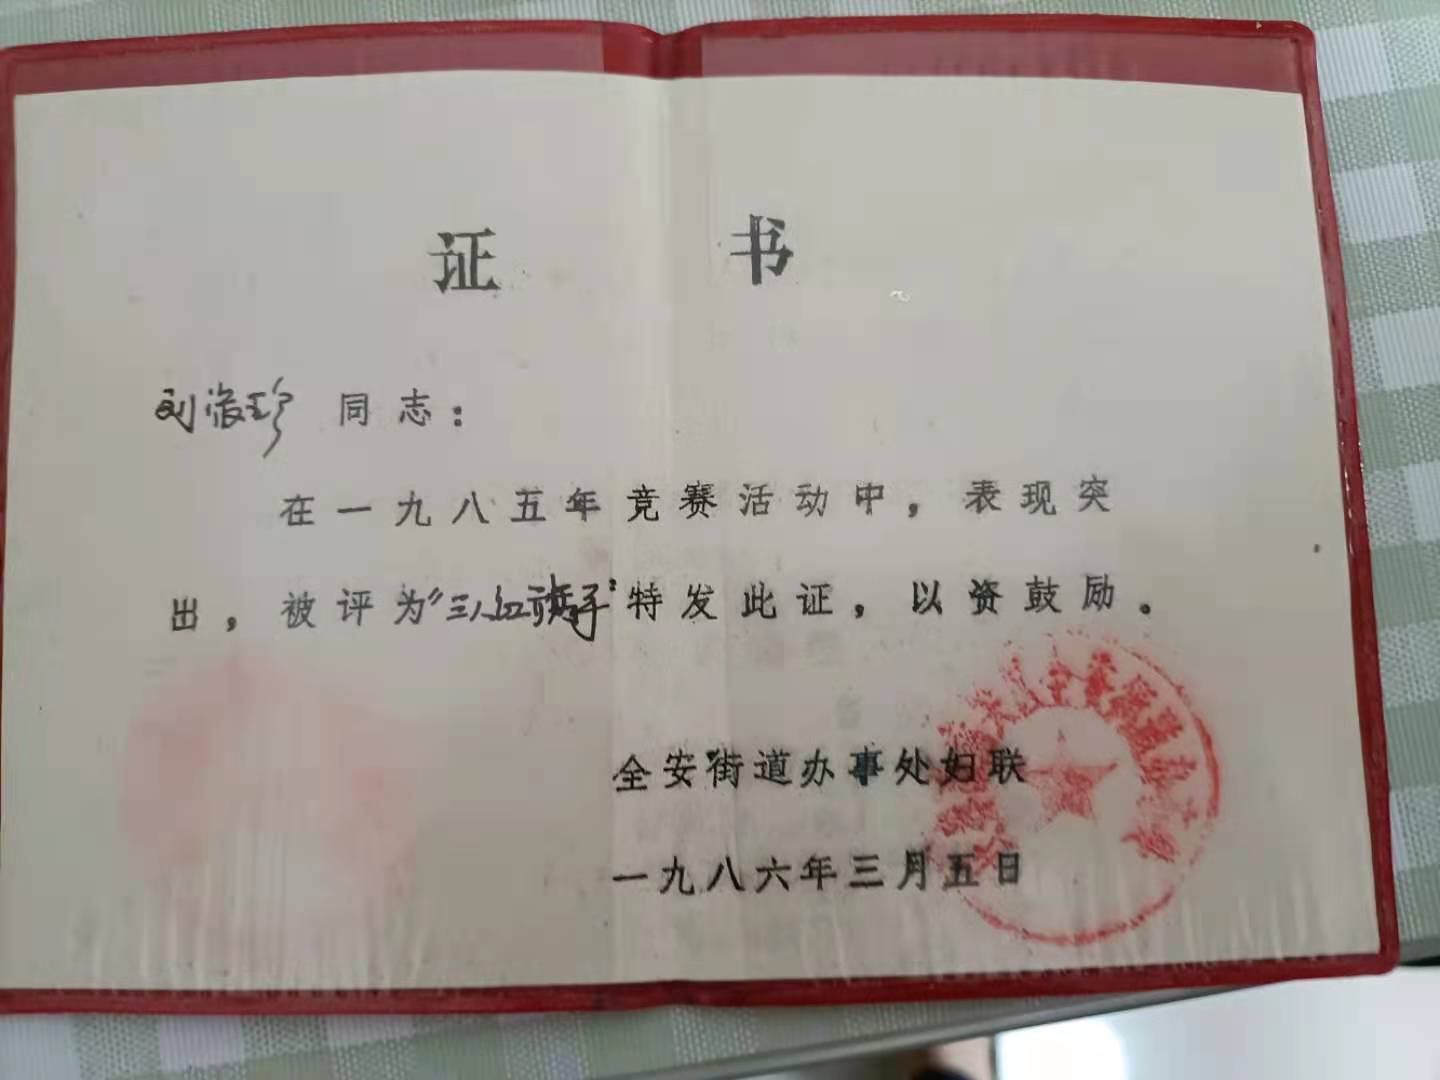 证 书
刘淑珍 同志：
在一九八五年竞赛活动中，表现突
出，被评为“三八红旗手”特发此证，以资鼓励。
全安街道办事处妇联
一九八六年三月五日